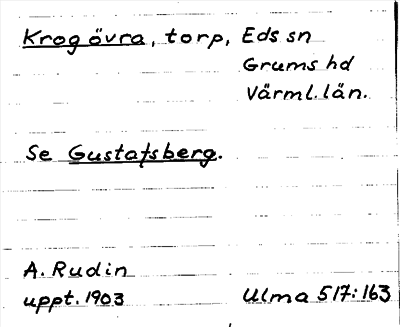 Krog övra, torp, Eds sn
Grums hd
Värml. län.
Se Gustafsberg.
A. Rudin
uppt. 1903
Ulma 517:163